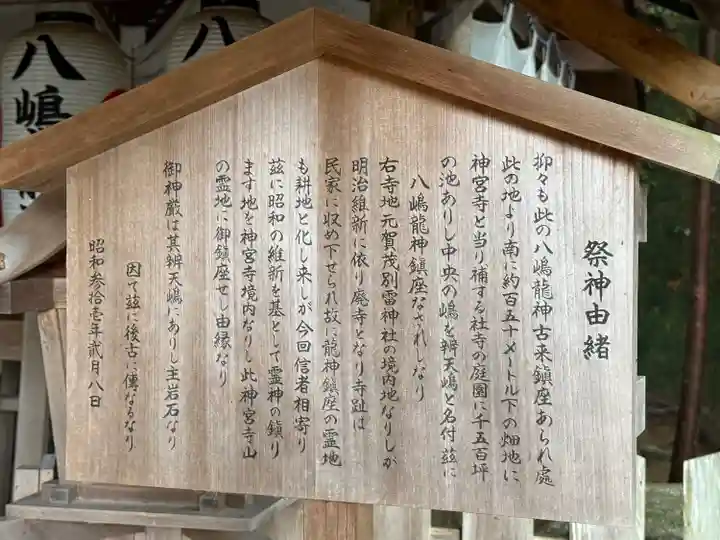 祭神由緒
抑々も此の八嶋龍神古来鎮座あられ處
此の地より南に約百五十メートル下の畑地に
神宮寺と当り補する社寺の庭園に千五百坪
の池ありし中央の嶋を辨天嶋と名付茲に
八嶋龍神鎮座なされしなり
右寺地元賀茂別雷神社の境内地なりしが
明治維新に依り廃寺となり寺趾は
民家に収め下せられ故に龍神鎮座の霊地
も耕地と化し来しが今回信者相寄り
茲に昭和の維新を基として霊神の鎮り
ます地を神宮寺境内なりし此神宮寺山
の霊地に御鎮座せし由縁なり
御神厳は其辨天嶋にありし主岩石なり
因て茲に後古に傳なるなり
昭和参拾壱年弐月八日
八嶋
八